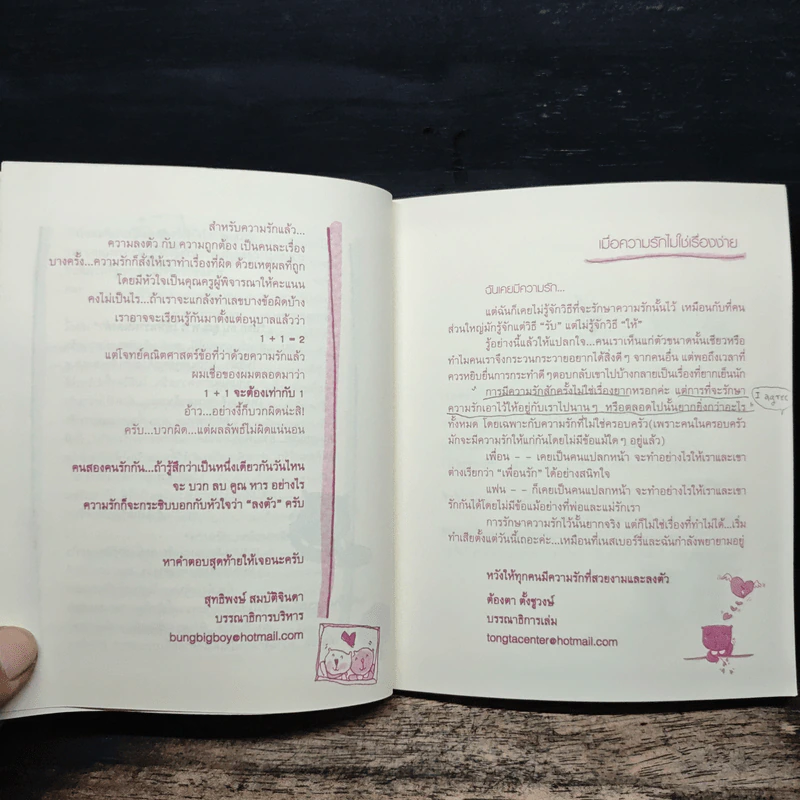 สำหรับความรักแล้ว...
ความลงตัว กับ ความถูกต้อง เป็นคนละเรื่อง
บางครั้ง...ความรักก็สั่งให้เราทำเรื่องที่ผิด ด้วยเหตุผลที่ถูก
โดยมีหัวใจเป็นคุณครูผู้พิจารณาให้คะแนน
คงไม่เป็นไร...ถ้าเราจะแกล้งทำเลขบางข้อผิดบ้าง
เราอาจจะเรียนรู้กันมาตั้งแต่อนุบาลแล้วว่า
1 + 1 = 2
แต่โจทย์คณิตศาสตร์ข้อที่ว่าด้วยความรักแล้ว
ผมเชื่อของผมตลอดมาว่า
1 + 1 จะต้องเท่ากับ 1
อ้าว...อย่างงี้ก็บวกผิดน่ะสิ!
ครับ...บวกผิด...แต่ผลลัพธ์ไม่ผิดแน่นอน
คนสองคนรักกัน...ถ้ารู้สึกว่าเป็นหนึ่งเดียวกันวันไหน
จะ บวก ลบ คูณ หาร อย่างไร
ความรักก็จะกระซิบบอกกับหัวใจว่า "ลงตัว" ครับ
หาคำตอบสุดท้ายให้เจอนะครับ
สุทธิพงษ์ สมบัติจินดา
บรรณาธิการบริหาร
bungbigboy@hotmail.com
เมื่อความรักไม่ใช่เรื่องง่าย
ฉันเคยมีความรัก...
แต่ฉันก็เคยไม่รู้จักวิธีที่จะรักษาความรักนั้นไว้ เหมือนกับที่คน
ส่วนใหญ่มักรู้จักแต่วิธี "รับ" แต่ไม่รู้จักวิธี "ให้"
รู้อย่างนี้แล้วให้แปลกใจ...คนเราเห็นแก่ตัวขนาดนั้นเชียวหรือ
ทำไมคนเราจึงกระวนกระวายอยากได้สิ่งดีๆ จากคนอื่น แต่พอถึงเวลาที่
ควรหยิบยื่นการกระทำดีๆ ตอบกลับเขาไปบ้างกลายเป็นเรื่องที่ยากเย็นนัก
การมีความรักสักครั้งไม่ใช่เรื่องยากหรอกค่ะ แต่การที่จะรักษา
ความรักเอาไว้ให้อยู่กับเราไปนานๆ หรือตลอดไปนั้นยากยิ่งกว่าอะไร
I agree
ทั้งหมด โดยเฉพาะกับความรักที่ไม่ใช่ครอบครัว(เพราะคนในครอบครัว
มักจะมีความรักให้แก่กันโดยไม่มีข้อแม้ใดๆ อยู่แล้ว)
เพื่อน - - เคยเป็นคนแปลกหน้า จะทำอย่างไรให้เราและเขา
ต่างเรียกว่า "เพื่อนรัก" ได้อย่างสนิทใจ
แฟน - - ก็เคยเป็นคนแปลกหน้า จะทำอย่างไรให้เราและเขา
รักกันได้โดยไม่มีข้อแม้อย่างที่พ่อและแม่รักเรา
การรักษาความรักไว้นั้นยากจริง แต่ก็ไม่ใช่เรื่องที่ทำไม่ได้...เริ่ม
ทำเสียตั้งแต่วันนี้เถอะค่ะ...เหมือนที่เนสเบอร์รี่และฉันกำลังพยายามอยู่
หวังให้ทุกคนมีความรักที่สวยงามและลงตัว
ต้องตา ตั้งชูวงษ์
บรรณาธิการเล่ม
tongtacenter@hotmail.com